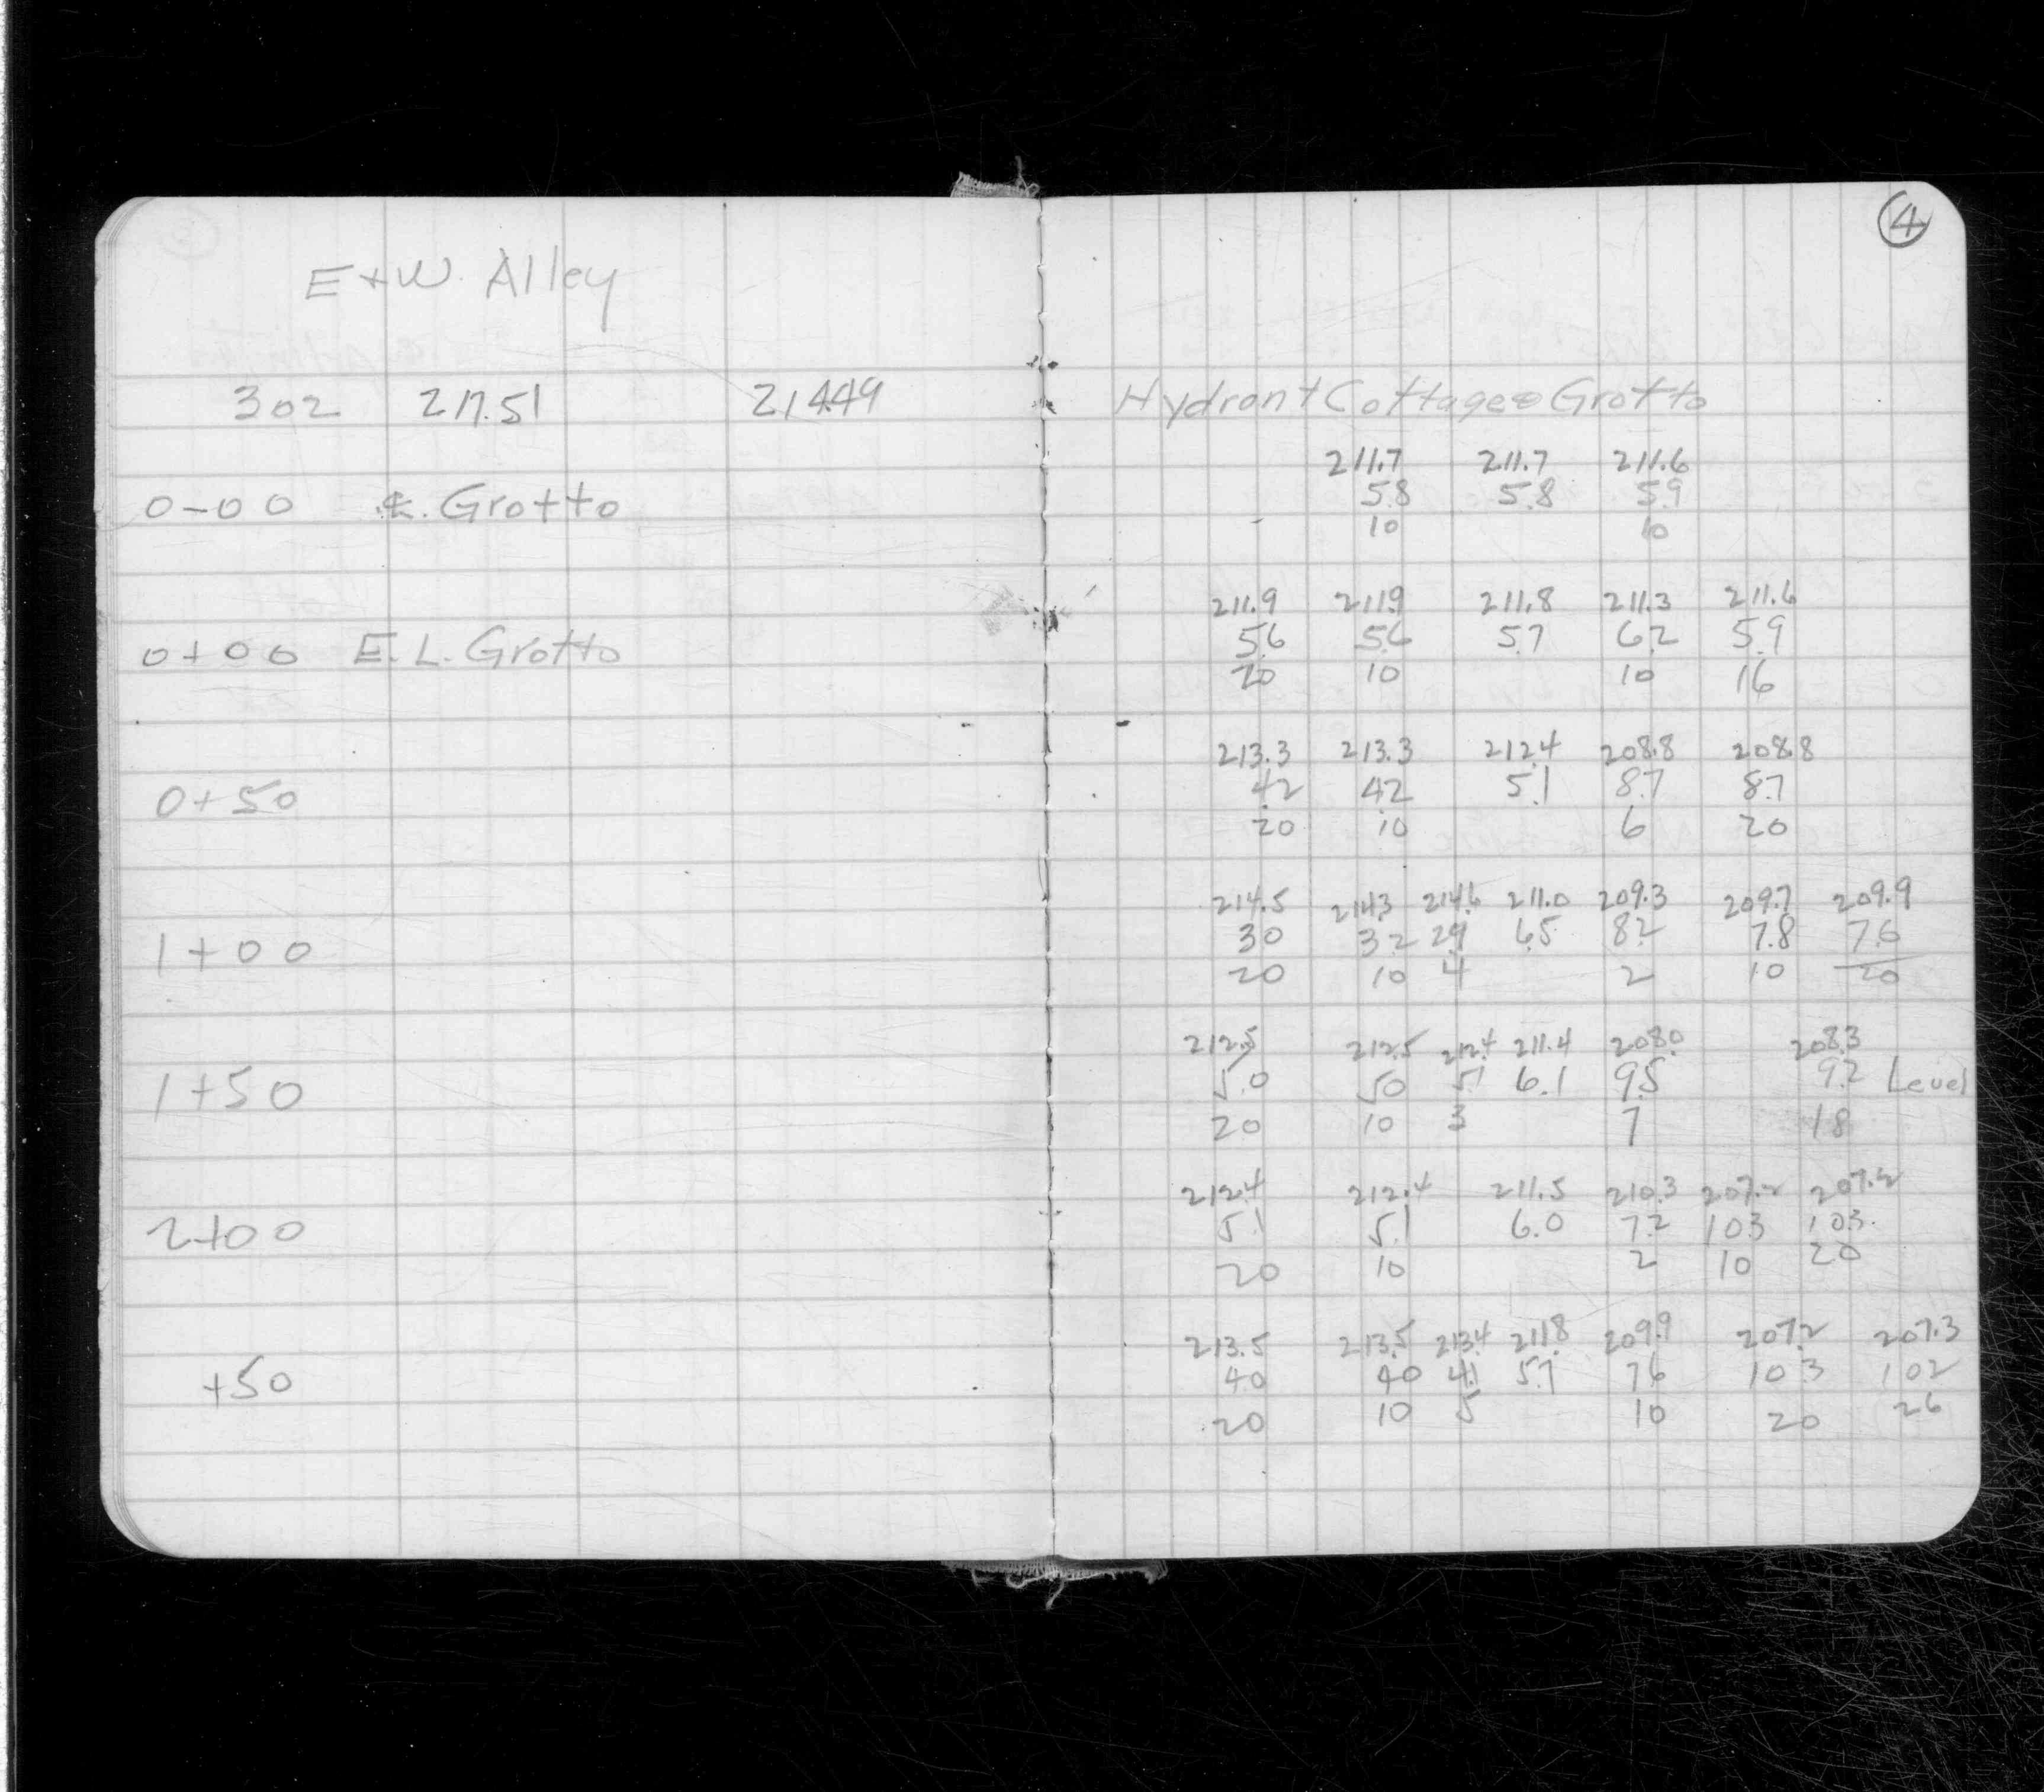 4
E+W. Alley
302 217.51 214.49 Hydrant Cottage & Grotto
211.7 211.7 211.6
0-00 ℄. Grotto 5.8 5.8 5.9
10 10
211.9 211.9 211.8 211.3 211.6
0+00 E.L. Grotto 5.6 5.6 5.7 6.2 5.9
20 10 10 16
213.3 213.3 212.4 208.8 208.8
0+50 4.2 4.2 5.1 8.7 8.7
20 10 6 20
214.5 214.3 214.6 211.0 209.3 209.7 209.9
1+00 3.0 3.2 2.9 6.5 8.2 7.8 7.6
20 10 4 2 10 20
212.5 212.5 212.4 211.4 208.0 208.3
1+50 5.0 5.0 5.1 6.1 9.5 9.2 Level
20 10 3 7 18
212.4 212.4 211.5 210.3 207.2 207.2
2+00 5.1 5.1 6.0 7.2 10.3 10.3
20 10 2 10 20
213.5 213.5 213.4 211.8 209.9 207.2 207.3
+50 4.0 4.0 4.1 5.7 7.6 10.3 10.2
20 10 5 10 20 26